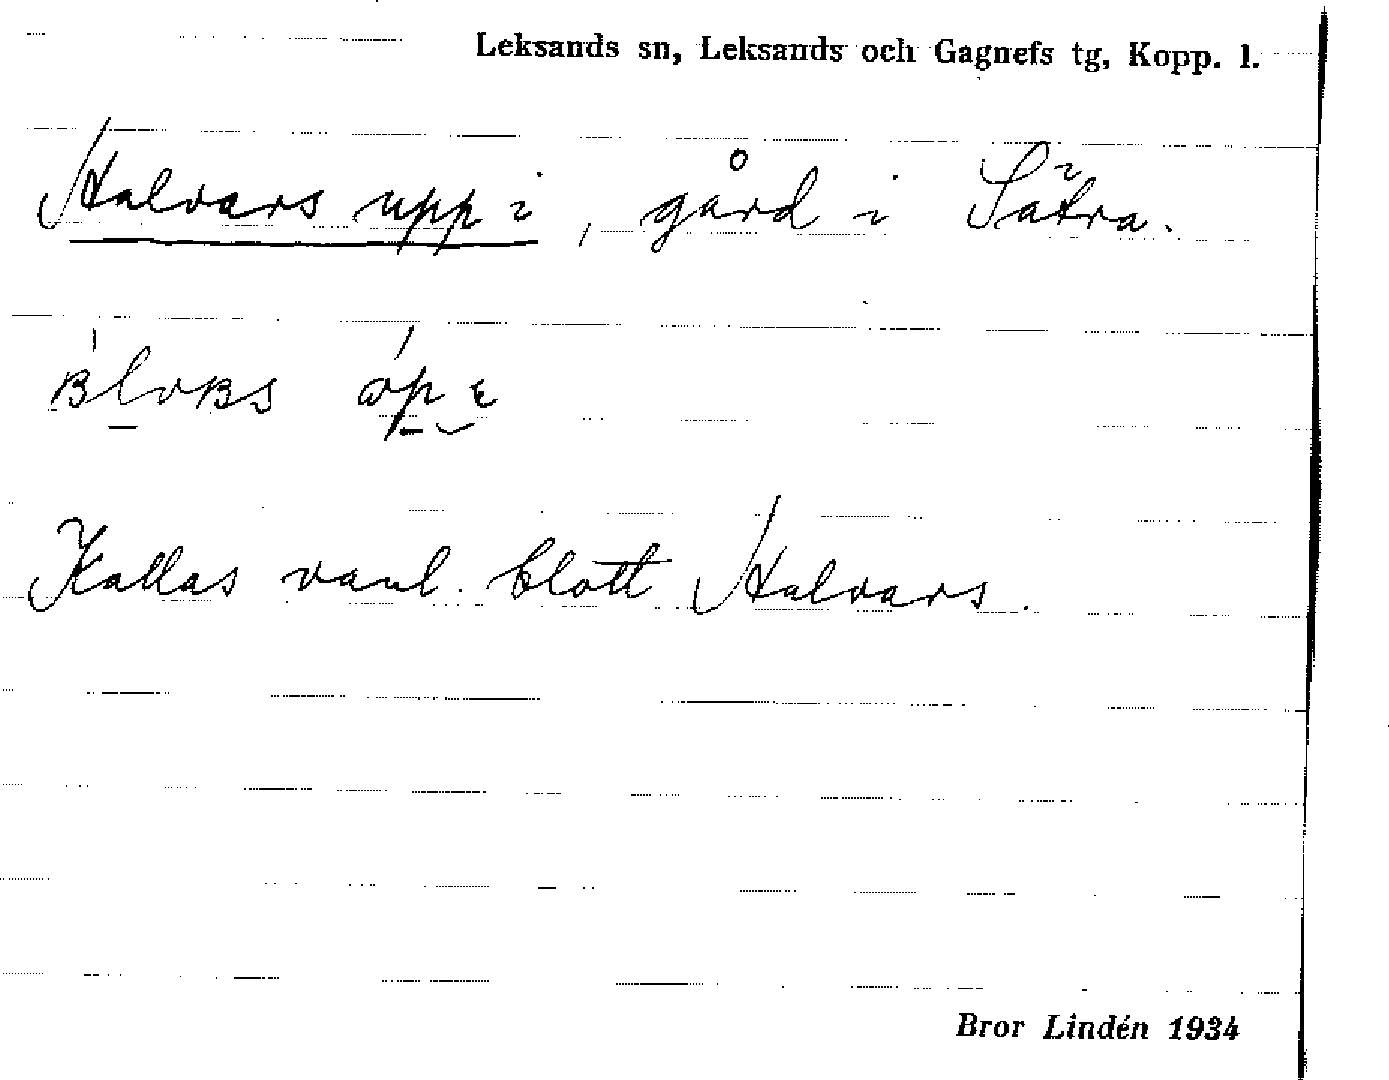 Leksands sn, Leksands och Gagnefs tg, Kopp. l.
Halvars upp i, gård i Sätra.
Kallas vanl. blott Halvars.
Bror Lindén 1934